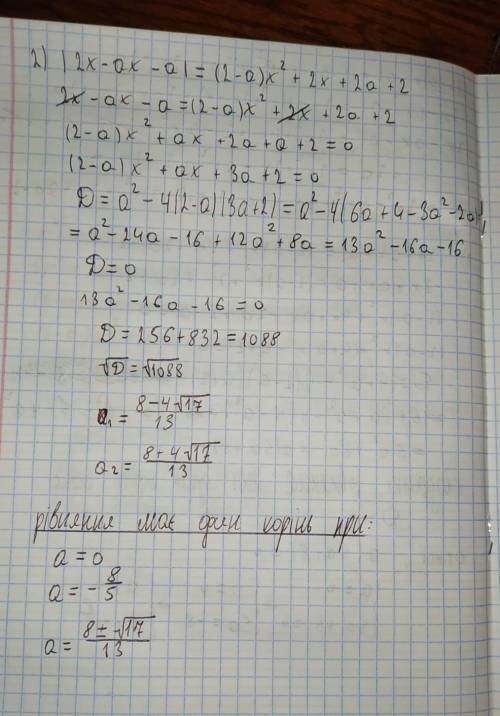 2) |2x - ax - a| = (2-a)x² + 2x + 2a + 2
2x - ax - a = (2-a)x² + 2x + 2a + 2
(2-a)x² + ax + 2a + a + 2 = 0
(2-a)x² + ax + 3a + 2 = 0
D = a² - 4(2-a)(3a+2) = a² - 4(6a + 4 - 3a² - 2a)=
= a² - 24a - 16 + 12a² + 8a = 13a² - 16a - 16
D = 0
13a² - 16a - 16 = 0
D = 256 + 832 = 1088
√D = √1088
a₁ = (8 - 4√17)/13
a₂ = (8 + 4√17)/13
рівняння має один корінь при:
a = 0
a = -8/5
a = (8 ± √17)/13